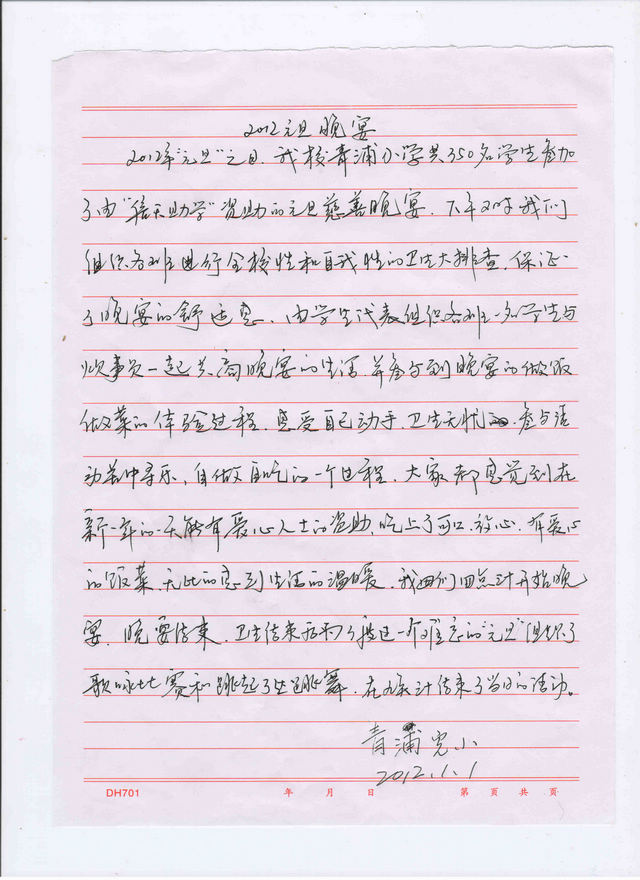 2012元旦晚宴
2012年"元旦"之日，我校青浦小学共350名学生参加
了由"信天助学"资助的元旦慈善晚宴，下午2时我们
组织各班进行全校性和自我性的卫生大排查，保证
了晚宴的舒适感，由学生代表组织各班一名学生与
炊事员一起共商晚宴的生活并参与到晚宴的做饭
做菜的体验过程，感受自己动手，卫生无忧，参与活
动苦中寻乐，自做自吃的一个过程，大家都感觉到在
新一年的一天能有爱心人士的资助，吃上了可口、放心、有爱心
的饭菜，无比的感到生活的温暖，我们四点计开始晚
宴，晚宴结束，卫生结束后为了一个难忘的"元旦"组织了
歌咏比赛和跳起了舞，在九点计结束了当日的活动。
青浦完小
2012.1.1
DH701 年 月 日 第 页 共 页